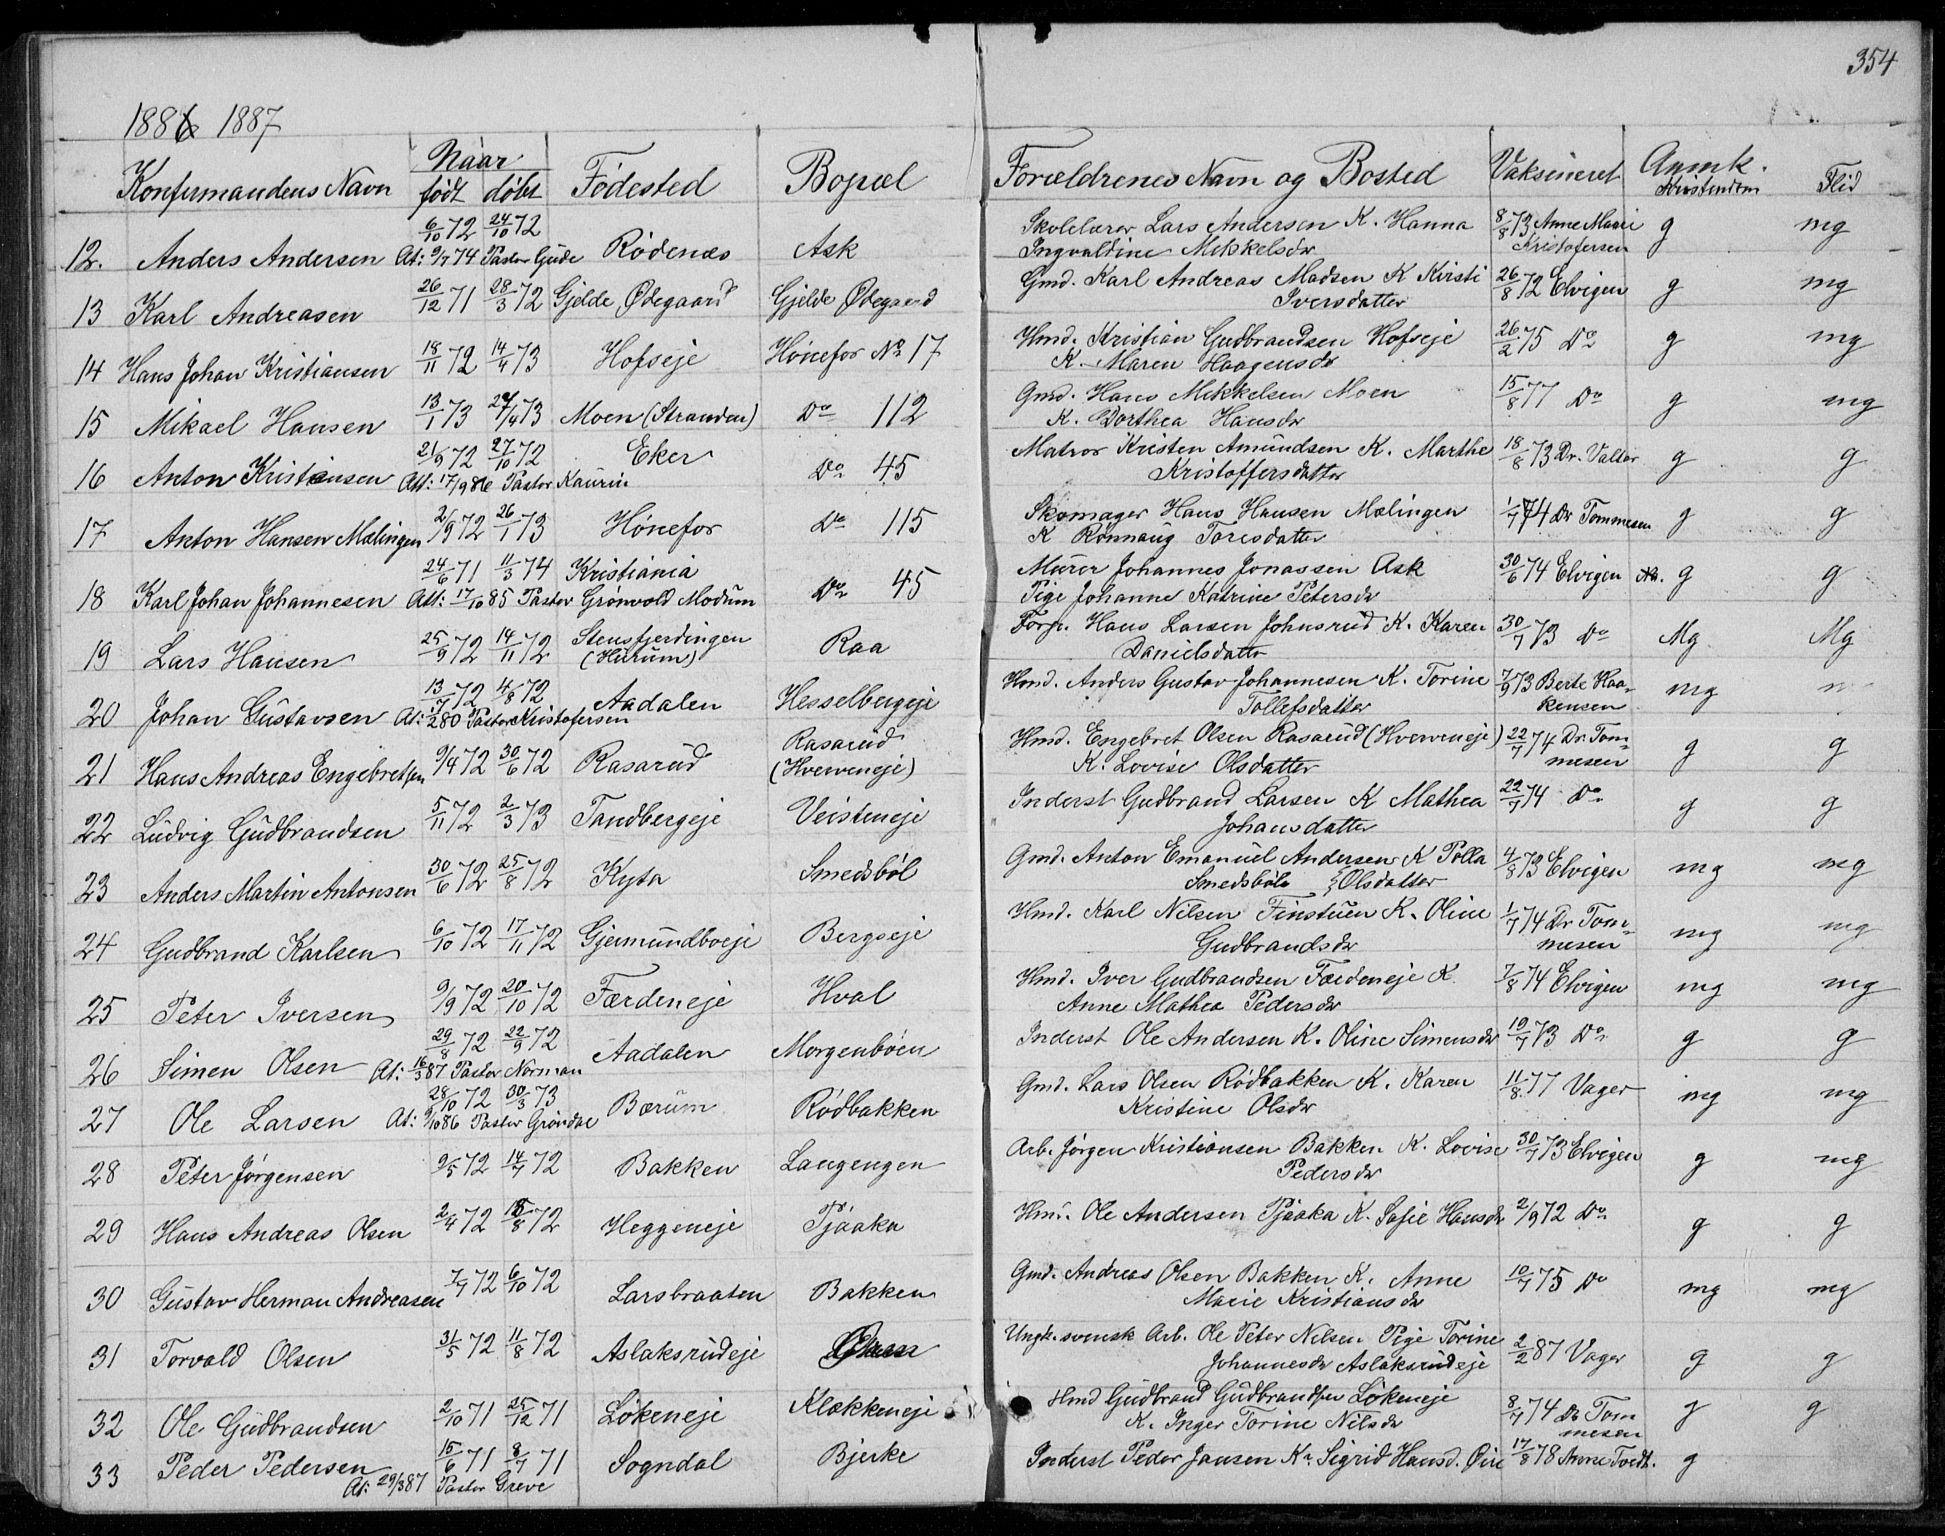 354
1886 1887
Konfirmandens Navn | Naar født døbt | Fødested | Bopæl | Forældrenes Navn og Bosted | Vaksineret | Anmk. Kristendom | Flid
12. Anders Andersen | 6/10 72 | 24/10 72 | Rødenæs | Ask | Skolelærer Lars Andersen K. Hanna | 8/8 73 Anne Marie | g | mg
At: 9/7 74 Pastor Gude | Ingvaldine Mikkelsdr | Kristofersen
13 Karl Andreasen | 26/12 71 | 28/3 72 | Gjelde Ødegaard | Gjelde Ødegaard | Gmd. Karl Andreas Madsen K Kirsti | 26/8 72 Elvigen | g | mg
Iversdatter
14 Hans Johan Kristiansen | 18/11 72 | 14/4 73 | Hofseje | Hønefos No 17 | Hmd. Kristian Gudbrandsen Hofseje | 26/2 75 Do | g | mg
K. Maren Haagensdr
15 Mikael Hansen | 13/1 73 | 27/4 73 | Moen (Stranden) | Do 112 | Gmd. Hans Mikkelsen Moen | 15/8 77 Do | g | mg
K. Dorthea Hansdr
16 Anton Kristiansen | 21/9 72 | 27/10 72 | Eker | Do 45 | Matros Kristen Amundsen K. Marthe | 18/8 73 Dr. Valter | g | g
Att: 17/9 86 Pastor Kaurin | Kristoffersdatter
17 Anton Hansen Mælingen | 2/9 72 | 26/1 73 | Hønefos | Do 115 | Skomager Hans Hansen Mælingen | 1/7 74 Dr Tommesen | g | g
K Rønnaug Toresdatter
18 Karl Johan Johannesen | 24/6 71 | 11/3 74 | Kristiania | Do 45 | Murer Johannes Jonassen Ask | 30/6 74 Elvigen | g | g
Att: 17/10 85 Pastor Grønvold Modum | Pige Johanne Katrine Petersdr
19 Lars Hansen | 25/9 72 | 14/11 72 | Stensfjerdingen | Raa | Forp. Hans Larsen Johnsrud K. Karen | 30/7 73 Do | Mg | Mg
(Hurum) | Danielsdatter
20 Johan Gustavsen | 13/7 72 | 4/8 72 | Aadalen | Hesselbergeje | Hmd. Anders Gustav Johannesen K. Torine | 7/9 73 Berte Haa- | mg
At: 280 Pastor Kristofersen | Tollefsdatter | kensen
21 Hans Andreas Engebretsen | 9/4 72 | 30/6 72 | Rasarud | Rasarud | Hmd. Engebret Olsen Rasarud (Hverveneje) | 22/7 74 Dr Tom- | g | g
(Hverveneje) | K. Lovise Olsdatter | mesen
22 Ludvig Gudbrandsen | 5/11 72 | 2/3 73 | Tandbergeje | Veisteneje | Inderst Gudbrand Larsen K Mathea | 22/7 74 Do | g | g
Johansdatter
23 Anders Martin Antonsen | 30/6 72 | 25/8 72 | Kyta | Smedsbøl | Gmd. Anton Emanuel Andersen K Polla | 4/8 73 Elvigen | mg | mg
Smedsbøl Olsdatter
24 Gudbrand Karlsen | 6/10 72 | 17/11 72 | Gjermundboeje | Bergseje | Hmd. Karl Nilsen Finstuen K. Oline | 1/7 74 Dr Tom- | mg | mg
Gudbrandsdr | mesen
25 Peter Iversen | 9/9 72 | 20/10 72 | Færdeneje | Hval | Hmd. Iver Gudbrandsen Færdeneje K | 7/8 74 Elvigen | mg | mg
Anne Mathea Pedersdr
26 Simen Olsen | 29/8 72 | 22/9 72 | Aadalen | Morgenbøen | Inderst Ole Andersen K. Oline Simensdr | 19/7 73 Do | g | g
At: 16/3 87 Pastor Norman
27 Ole Larsen | 28/10 72 | 30/3 73 | Bærum | Rødbakken | Gmd. Lars Olsen Rødbakken K. Karen | 11/8 77 Vager | mg | mg
At: 9/10 86 Pastor Grøndal | Kristine Olsdr
28 Peter Jørgensen | 9/5 72 | 14/7 72 | Bakken | Langengen | Arb. Jørgen Kristiansen Bakken K. Lovise | 30/7 73 Elvigen | g | mg
Pedersdr
29 Hans Andreas Olsen | 2/4 72 | /8 72 | Heggeneje | Pjaaka | Hmd. Ole Andersen Pjaaka K. Sofie Hansdr | 2/9 72 Do | g | g
30 Gustav Herman Andreasen | 7/7 72 | 6/10 72 | Larsbraaten | Bakken | Gmd. Andreas Olsen Bakken K. Anne | 10/7 75 Do | mg | mg
Marie Kristiansdr
31 Torvald Olsen | 31/5 72 | 11/8 72 | Aslaksrudeje | Ungk. svensk Arb. Ole Peter Nilsen Pige Torine | 2/2 87 Vager | g | g
Johannesdr Aslaksrudeje
32 Ole Gudbrandsen | 2/10 71 | 25/12 71 | Løkeneje | Klækkeneje | Hmd Gudbrand Gudbrandsen Løkeneje | 8/7 74 Dr Tom | g | g
K. Inger Torine Nilsdr | mesen
33 Peder Pedersen | 15/6 71 | 8/7 71 | Sogndal | Bjerke | Inderst Peder Jansen K. Sigrid Hansd. Øire | 17/8 78 Anne Tvedt. | g
At: 29/3 87 Pastor Greve